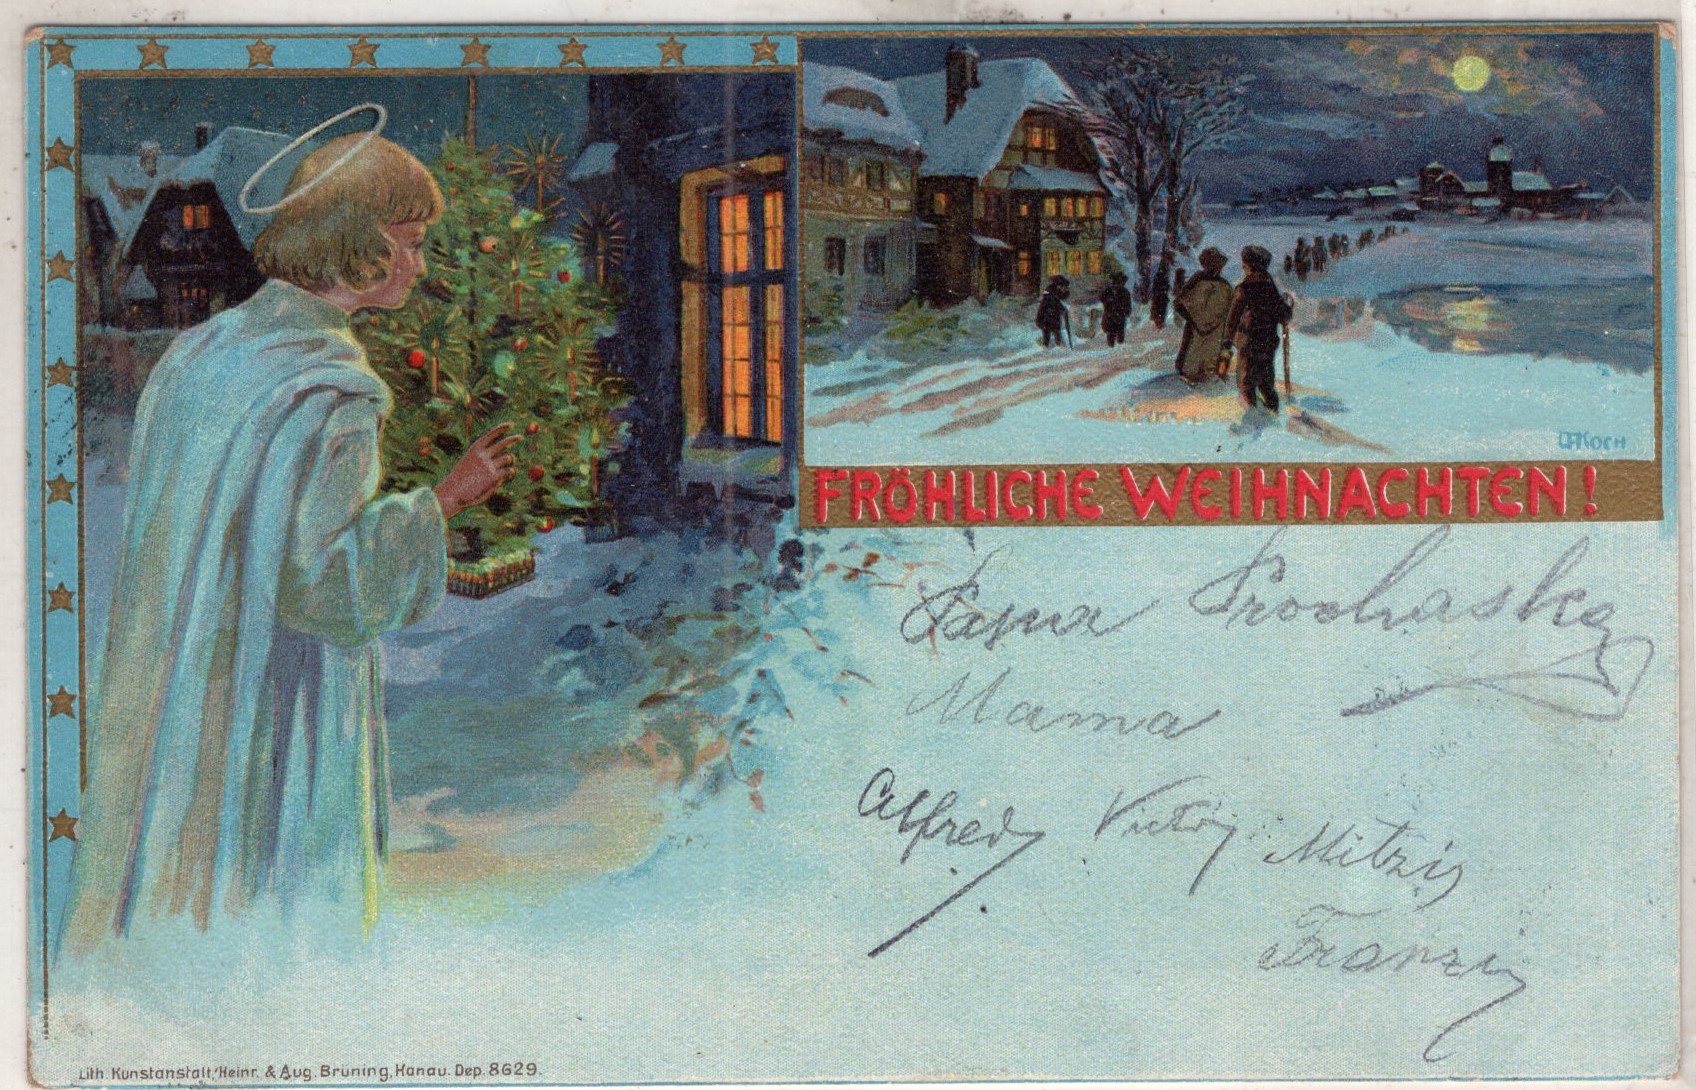 KOCH
FRÖHLICHE WEIHNACHTEN!
Papa Prochaska
Mama
Alfred Victor Mitzi
Franzi
Lith. Kunstanstalt, Heinr. & Aug. Brüning, Hanau. Dep. 8629.